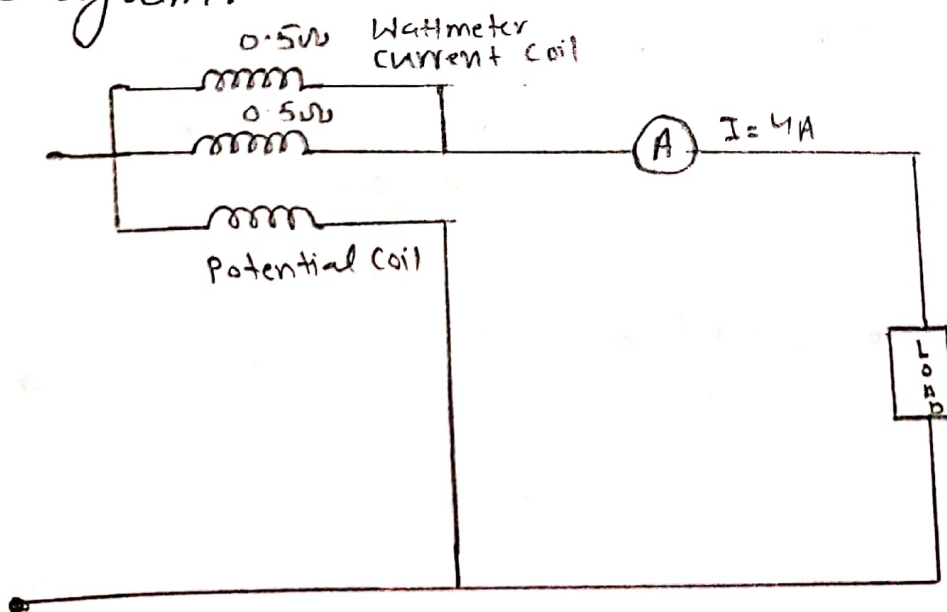 0.5Ω Wattmeter
current coil
0.5Ω
A I = 4A
Potential coil
LOAD